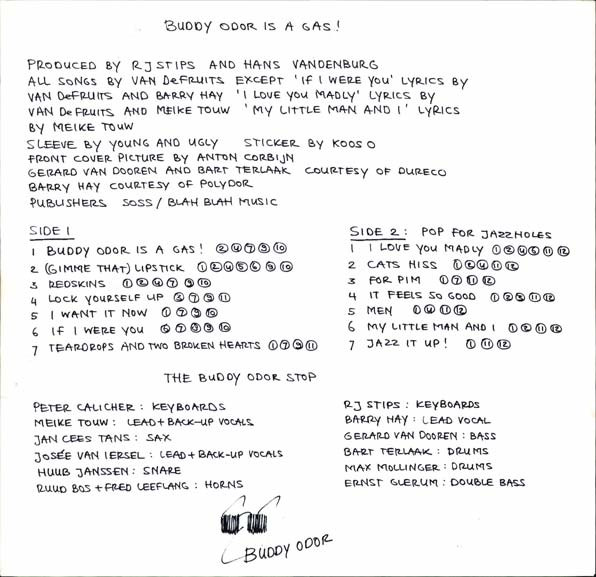 BUDDY ODOR IS A GAS!
PRODUCED BY RJ STIPS AND HANS VANDENBURG
ALL SONGS BY VAN DeFRUITS EXCEPT 'IF I WERE YOU' LYRICS BY
VAN DeFRUITS AND BARRY HAY 'I LOVE YOU MADLY' LYRICS BY
VAN DeFRUITS AND MEIKE TOUW 'MY LITTLE MAN AND I' LYRICS
BY MEIKE TOUW
SLEEVE BY YOUNG AND UGLY STICKER BY KOOS O
FRONT COVER PICTURE BY ANTON CORBIJN
GERARD VAN DOOREN AND BART TERLAAK COURTESY OF DURECO
BARRY HAY COURTESY OF POLYDOR
PUBLISHERS SOSS / BLAH BLAH MUSIC
SIDE 1
1 BUDDY ODOR IS A GAS! ② ④ ⑦ ⑨ ⑩
2 (GIMME THAT) LIPSTICK ① ② ④ ⑤ ⑥ ⑨ ⑩
3 REDSKINS ① ② ④ ⑦ ⑨ ⑩
4 LOCK YOURSELF UP ⑦ ⑨ ⑪
5 I WANT IT NOW ① ⑦ ⑨ ⑩
6 IF I WERE YOU ⑦ ⑨ ⑩
7 TEARDROPS AND TWO BROKEN HEARTS ① ⑦ ⑨ ⑪
SIDE 2: POP FOR JAZZHOLES
1 I LOVE YOU MADLY ① ② ④ ⑪ ⑫
2 CATS HISS ① ④ ⑪ ⑫
3 FOR PIM ① ⑦ ⑪ ⑫
4 IT FEELS SO GOOD ① ② ⑪ ⑫
5 MEN ① ⑪ ⑫
6 MY LITTLE MAN AND I ① ② ⑪ ⑫
7 JAZZ IT UP! ① ⑪ ⑫
THE BUDDY ODOR STOP
PETER CALICHER: KEYBOARDS
MEIKE TOUW: LEAD+BACK-UP VOCALS
JAN CEES TANS: SAX
JOSÉE VAN IERSEL: LEAD+BACK-UP VOCALS
HUUB JANSSEN: SNARE
RUUD BOS + FRED LEEFLANG: HORNS
RJ STIPS: KEYBOARDS
BARRY HAY: LEAD VOCAL
GERARD VAN DOOREN: BASS
BART TERLAAK: DRUMS
MAX MOLLINGER: DRUMS
ERNST GLERUM: DOUBLE BASS
BUDDY ODOR